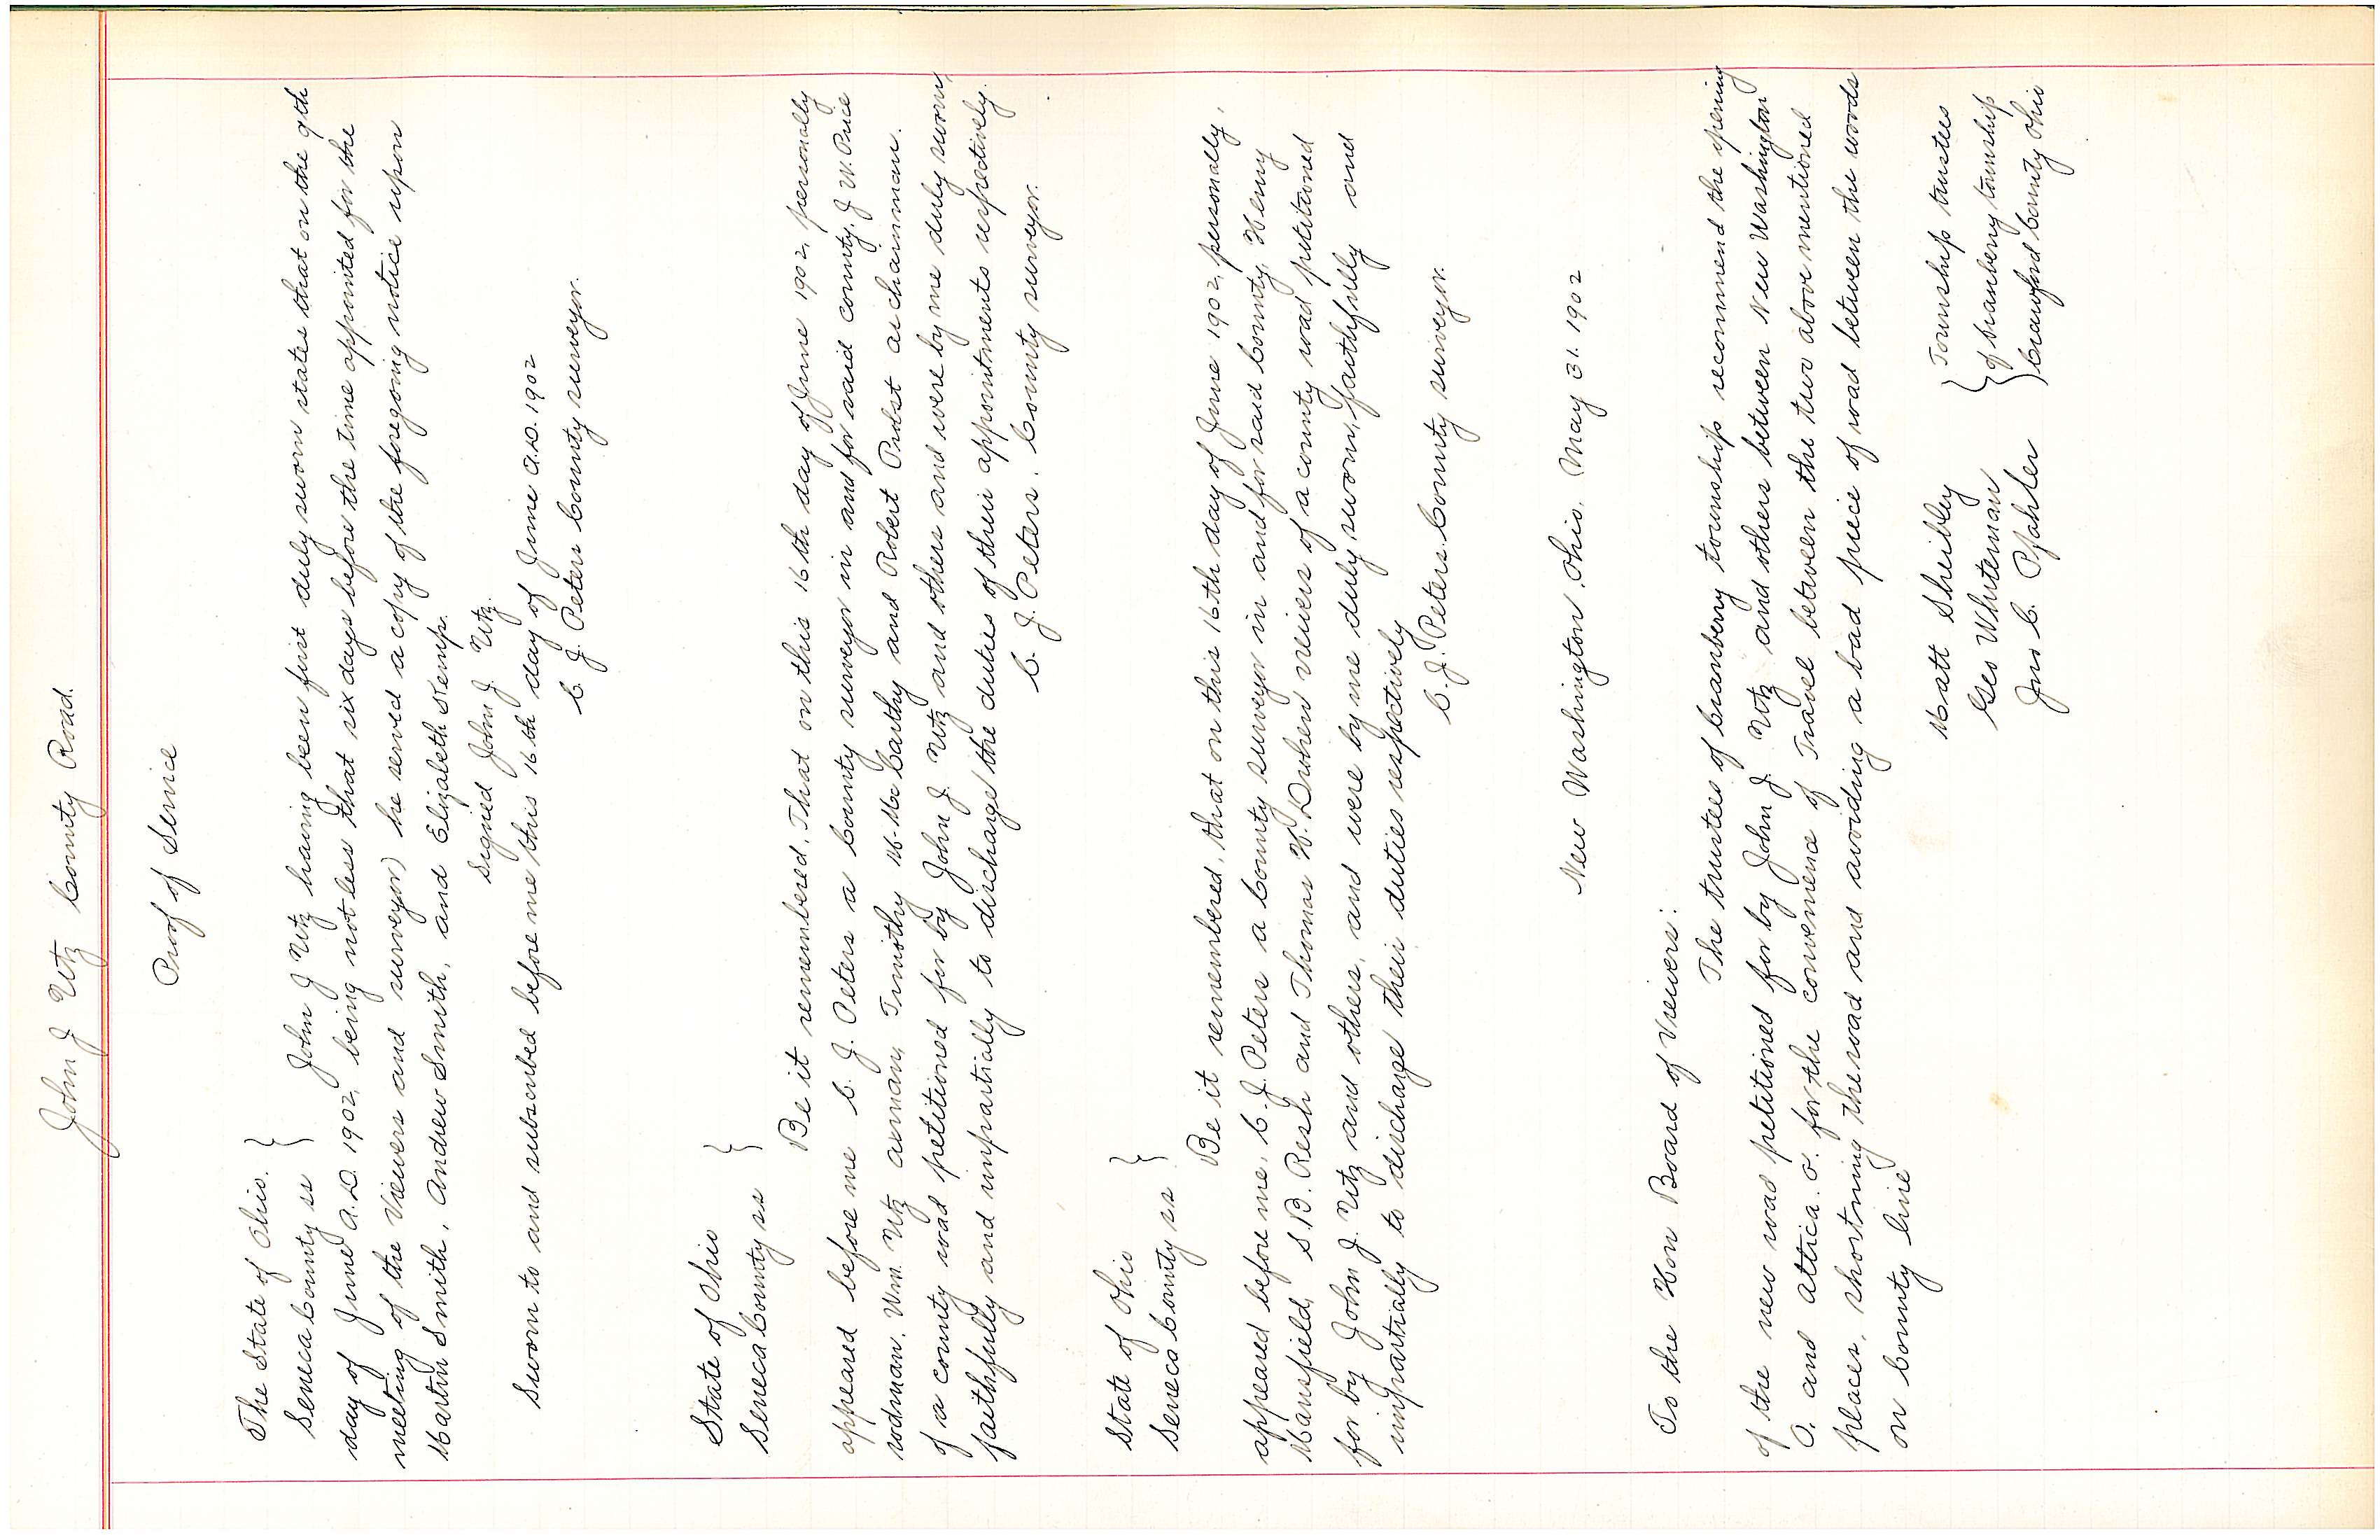 John J Utz County Road.
Proof of Service
The State of Ohio. }
Seneca County ss } John J Utz having been first duly sworn states that on the 9th
day of June A.D. 1902, being not less that six days before the time appointed for the
meeting of the Viewers and surveyor) he served a copy of the foregoing notice upon
Martin Smith, Andrew Smith, and Elizabeth Kemp.
Signed John J. Utz.
Sworn to and subscribed before me this 16th day of June A.D. 1902
C. J. Peters County surveyor.
State of Ohio }
Seneca County ss }
Be it remembered, That on this 16th day of June 1902, personally
appeared before me C. J. Peters a County surveyor in and for said county, J. W. Price
rodman, Wm. Utz axman, Timothy McCarthy and Robert Probst as chainman.
of a county road petitioned for by John J. Utz and others and were by me duly sworn,
faithfully and impartially to discharge the duties of their appointments respectively.
C. J. Peters. County surveyor.
State of Ohio }
Seneca County ss }
Be it remembered, that on this 16th day of June 1902, personally,
appeared before me, C. J. Peters a County surveyor in and for said County, Henry
Mansfield, S. B. Resh and Thomas H. viewers of a county road petitioned
for by John J. Utz and others, and were by me duly sworn, faithfully and
impartially to discharge their duties respectively
C. J. Peters. County surveyor.
New Washington, Ohio. May 31. 1902
To the Hon Board of Viewers:
The trustees of Cranberry township recommend the opening
of the new road petitioned for by John J. Utz and others between New Washington
O. and Attica. O. for the convenience of Travel between the two above mentioned
places, shortning the road and avoiding a bad piece of road between the woods
on County line
Matt Sheibley } Township trustees
Geo Whiteman } of Cranberry township
Jno C. Pfahler } Crawford County Ohio